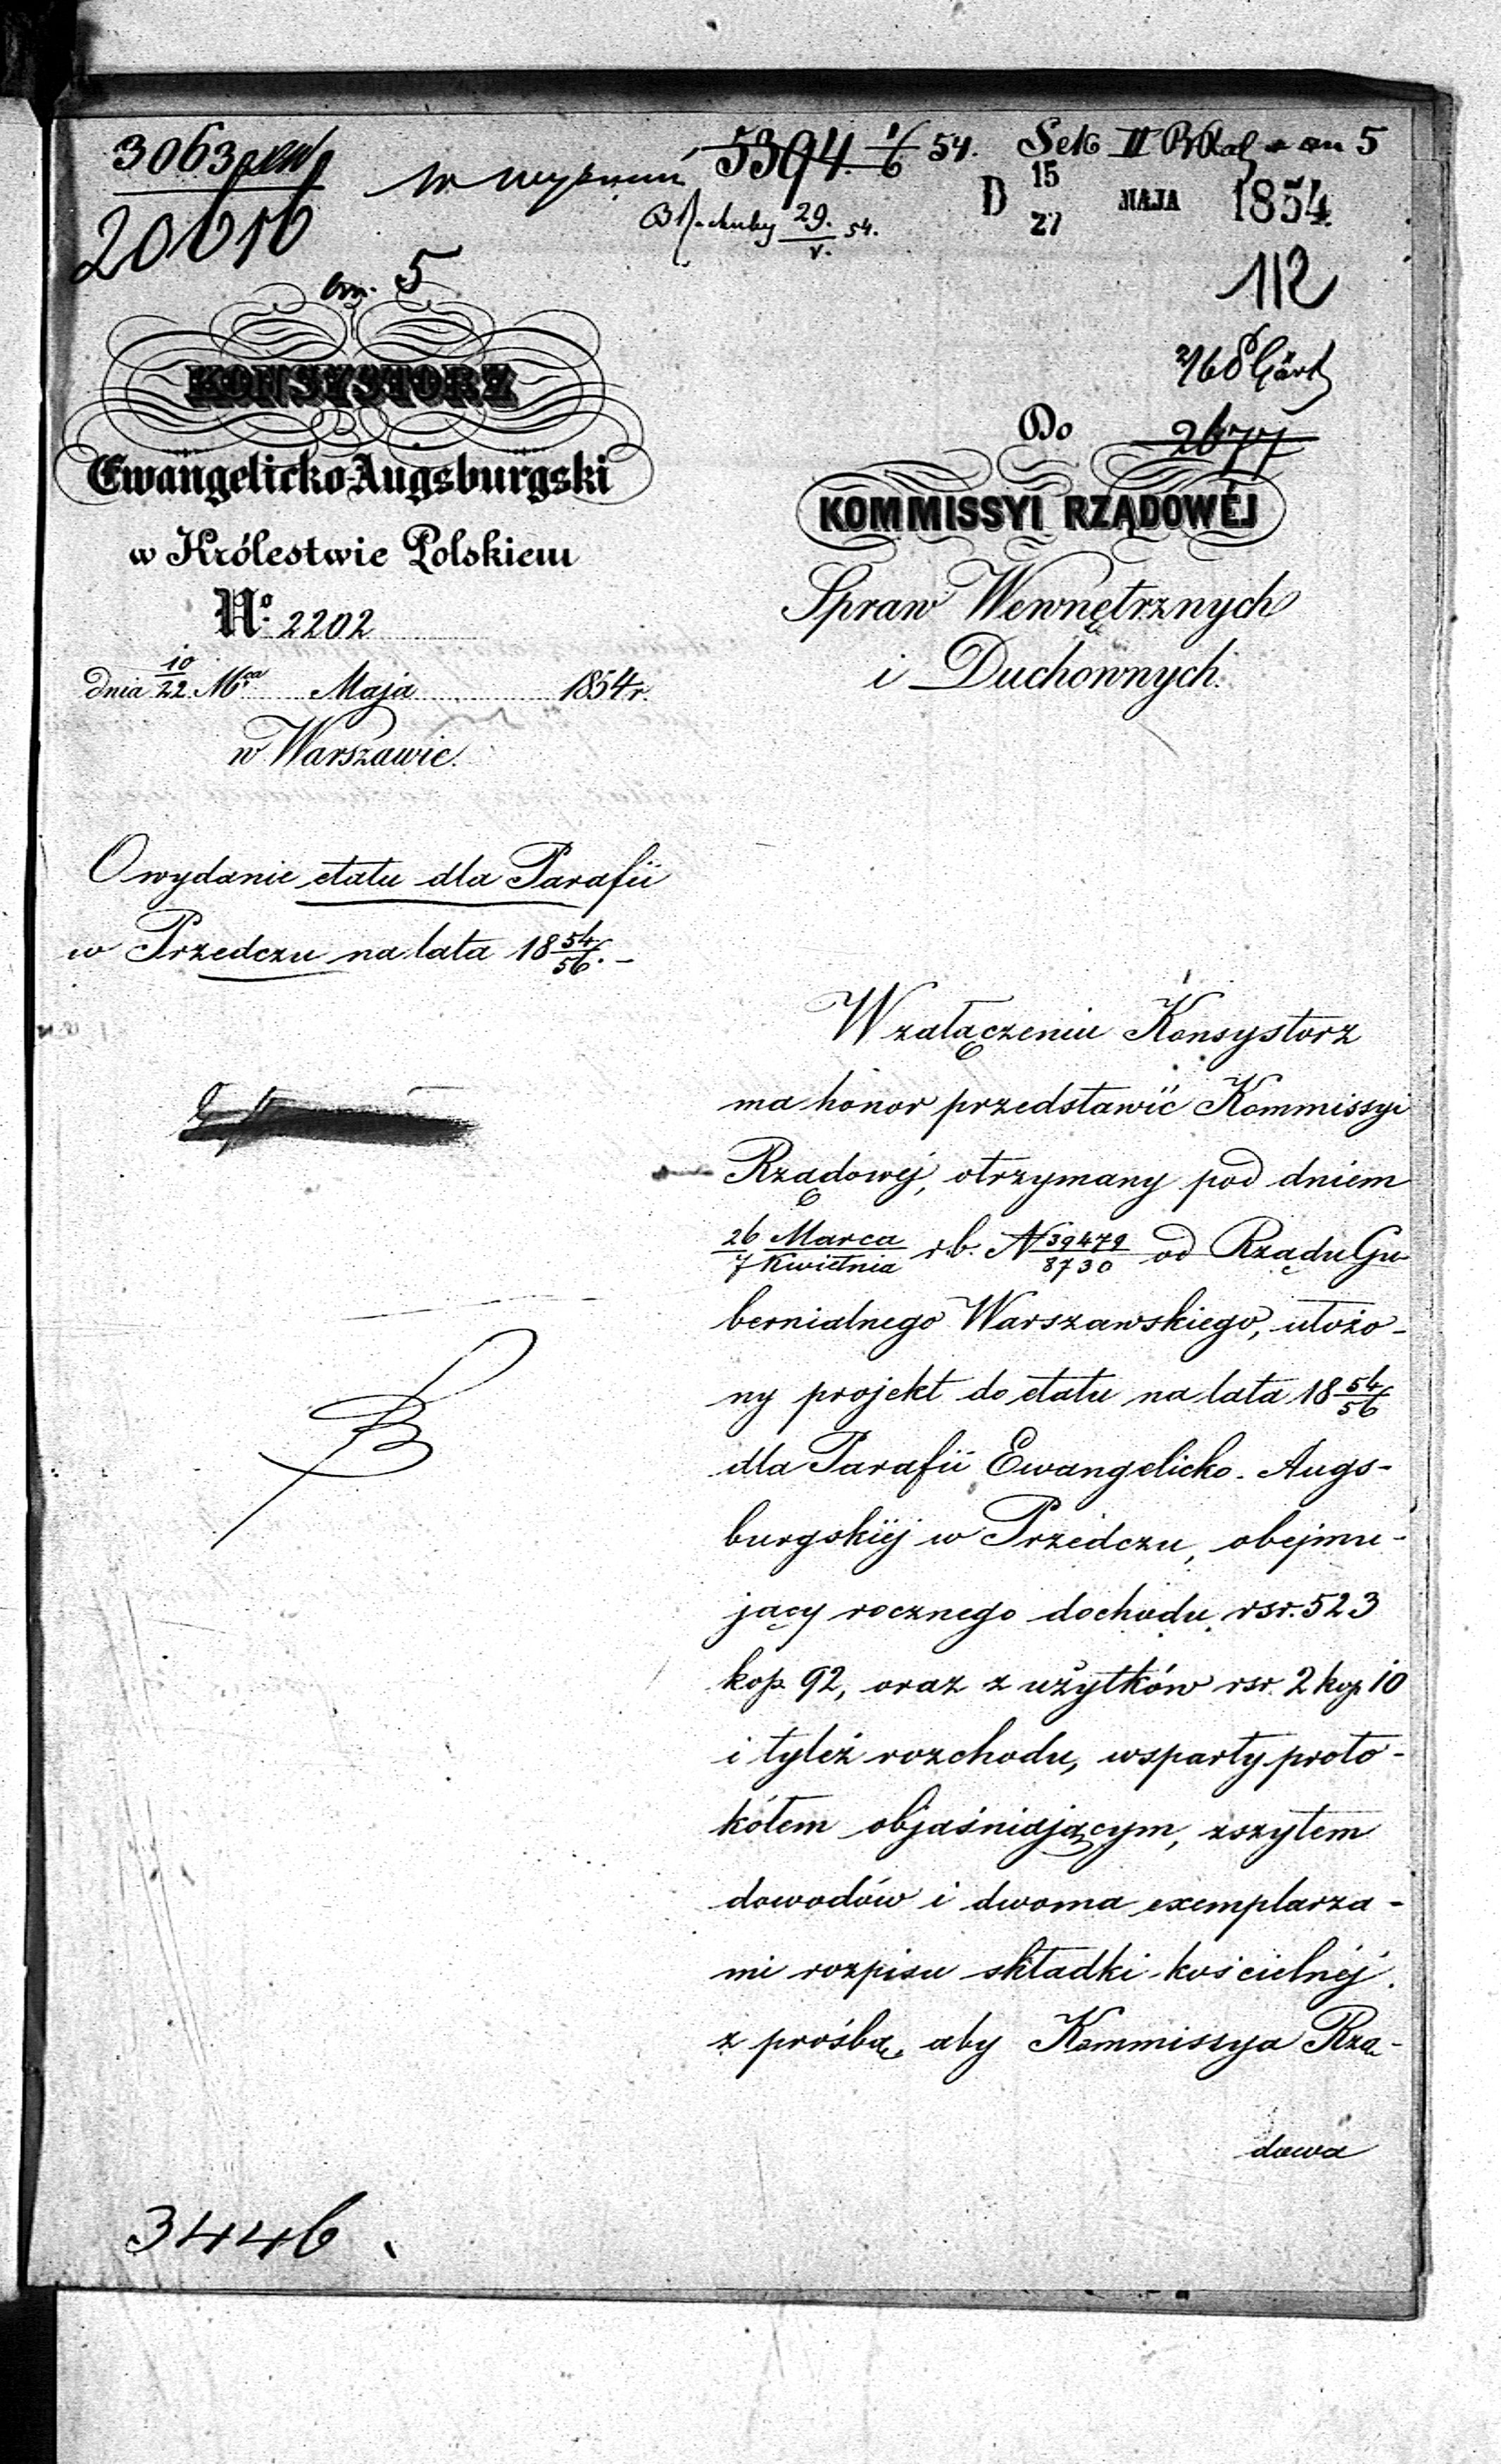 3063
20616
5394. 1/6 54.
29./v. 54.
Sek II
an 5
D 15/27 MAJA 1854.
112
5
KONSYSTORZ
Ewangelicko-Augsburgski
w Królestwie Polskiem
No. 2202
dnia 10/22 Mca Maja 1854 r.
w Warszawie.
O wydanie etatu dla Parafii
w Przedczu na lata 18 54/56. –
Do
2677
KOMMISSYI RZĄDOWÉJ
Spraw Wewnętrznych
i Duchownych.
W załączeniu Konsystorz
ma honor przedstawić Kommissyi
Rządowéj, otrzymany pod dniem
26 Marca/7 Kwietnia r.b. N 39479/8730 od Rządu Gu-
bernialnego Warszawskiego, ułożo-
ny projekt do etatu na lata 18 54/56
dla Parafii Ewangelicko-Augs-
burgskiéj w Przedczu, obejmu-
jący rocznego dochodu rsr. 523
kop. 92, oraz z użytków rsr. 2 kop 10
i tyleż rozchodu, wsparty proto-
kółem objaśniającym, zszytem
dowodów i dwoma exemplarza-
mi rozpisu składki kościelnéj.
z prośbą, aby Kommissya Rzą-
dowa
3446